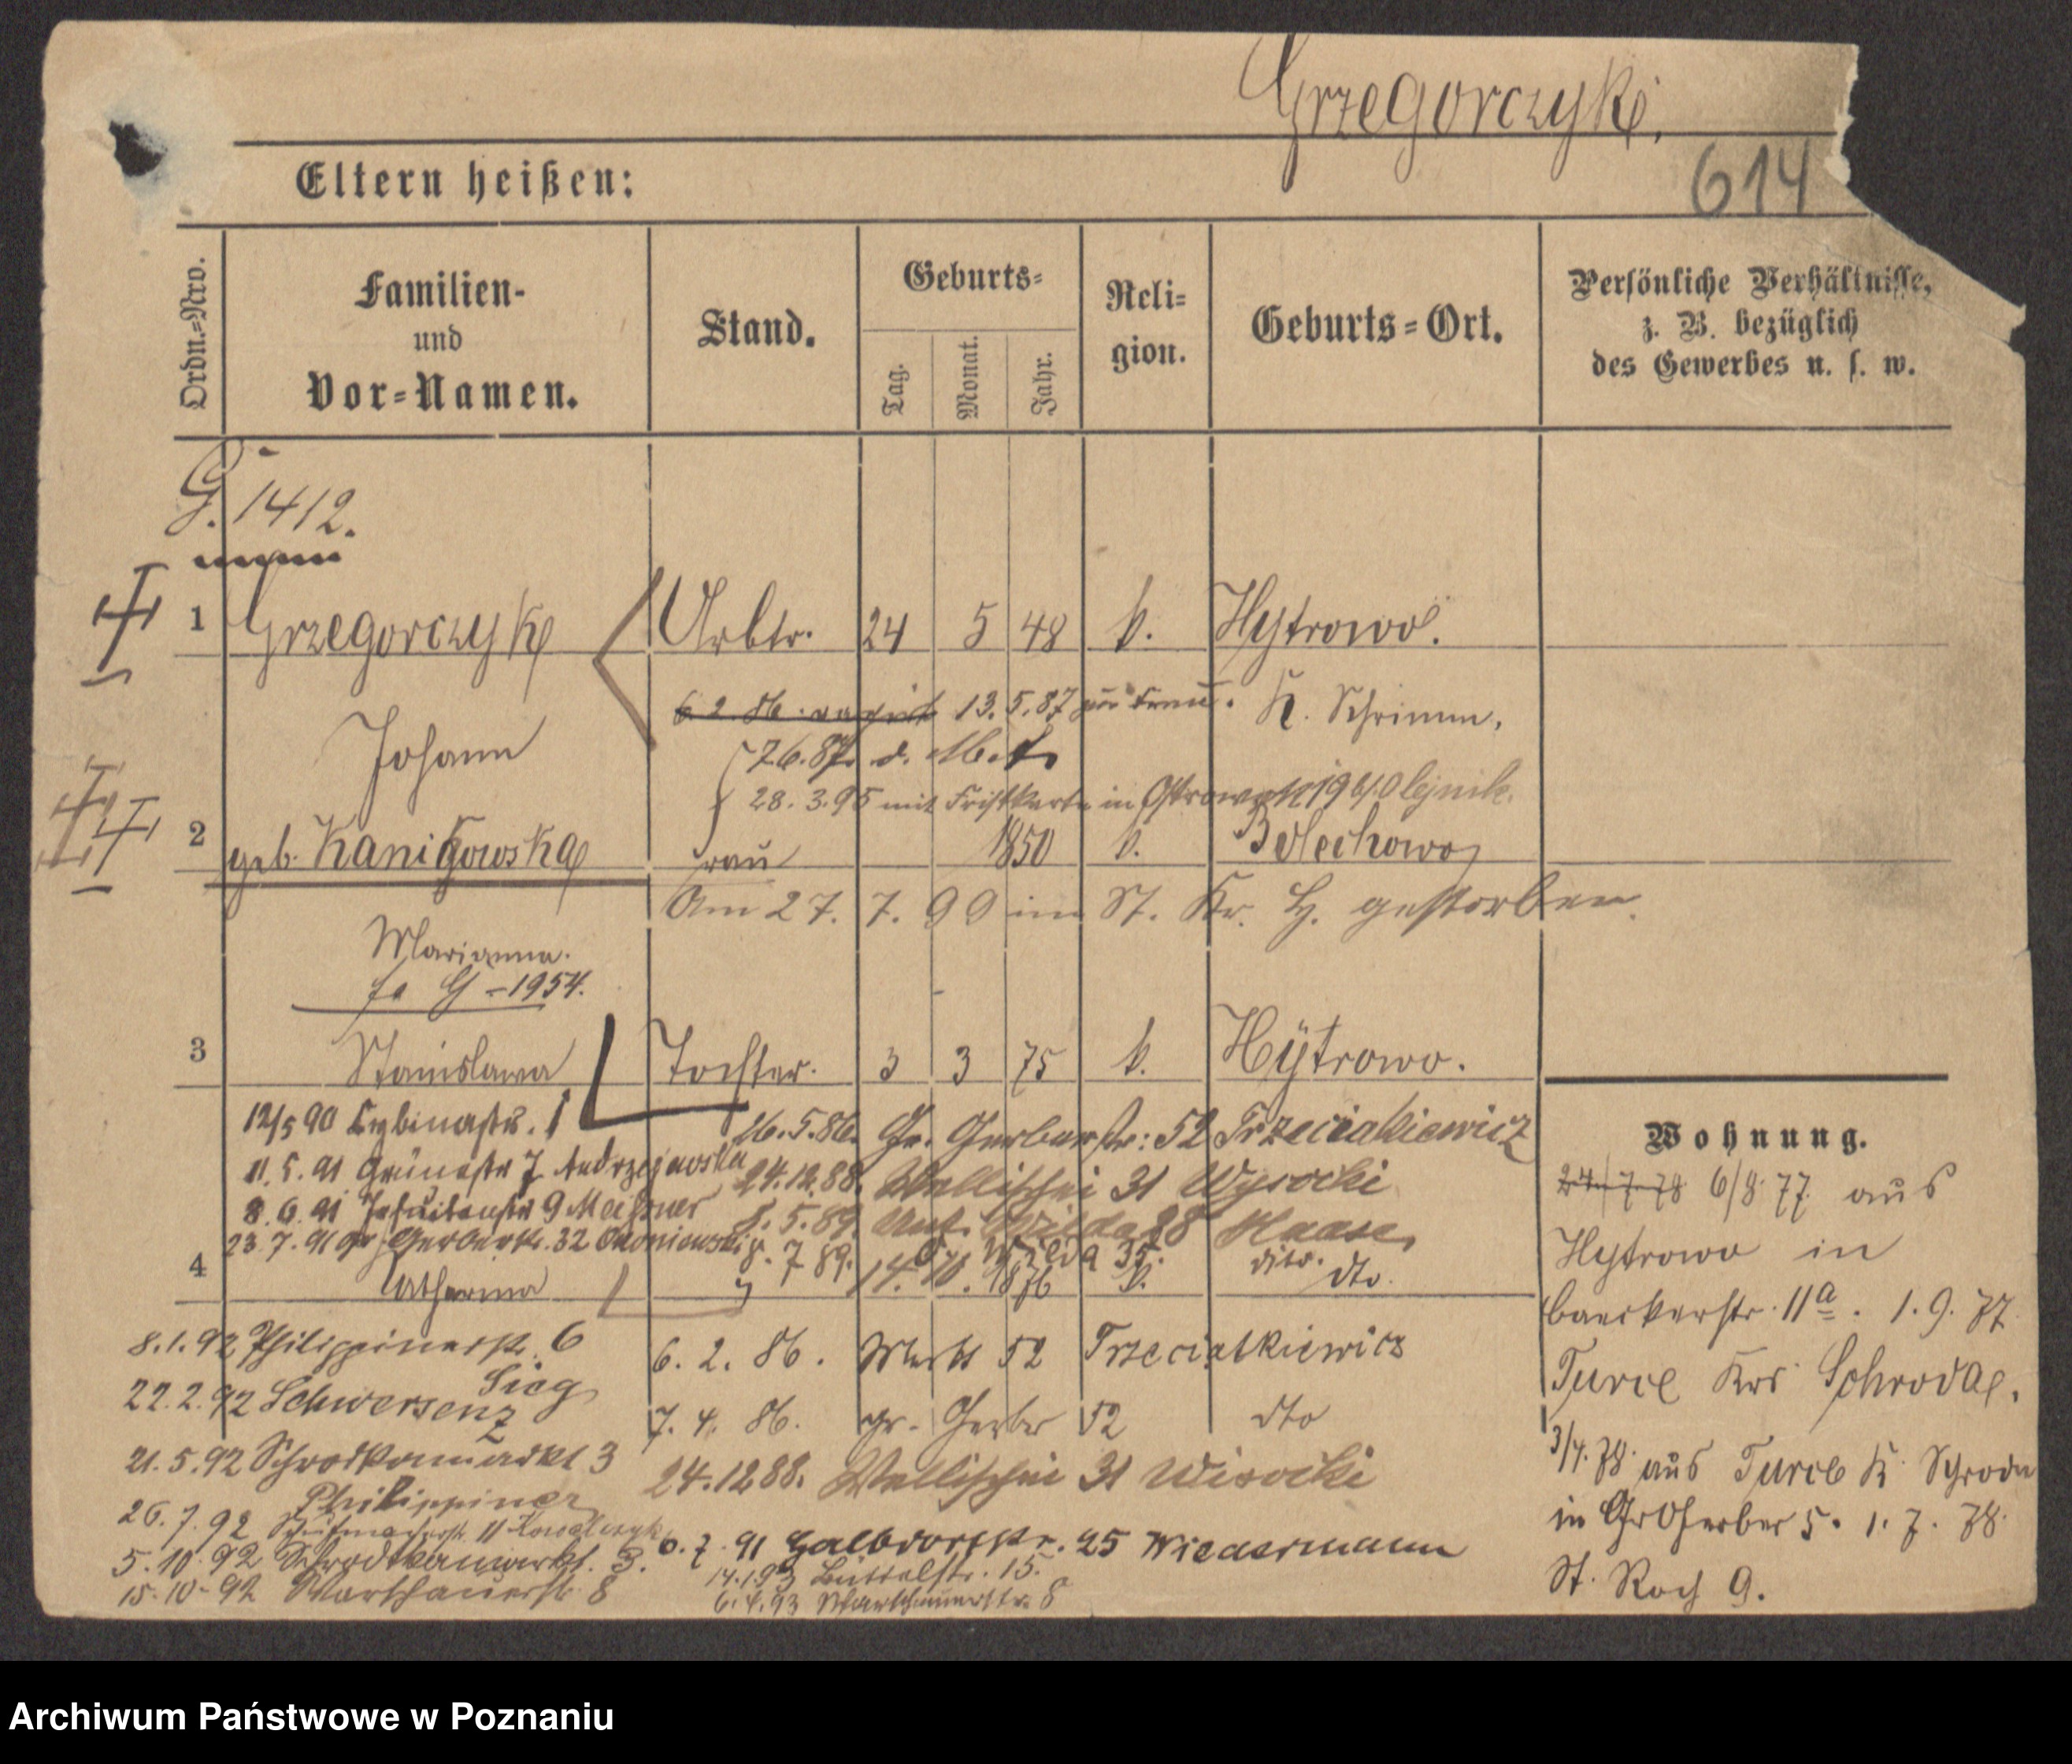 Grzegorczyk,
614
Eltern heißen:
Ordn.=Nro.
Familien-
und
Vor=Namen.
Stand.
Geburts=
Tag.
Monat.
Jahr.
Reli=
gion.
Geburts=Ort.
Persönliche Verhältnisse,
z. B. bezüglich
des Gewerbes u. s. w.
G. 1412.
1 Grzegorczyk Arbtr. 24 5 48 k. Hytrowo.
13.5.87 K. Schrimm,
Johann
28. 3. 95 mit in
2 geb. Kanikowska Frau 1850 k.
Am 27. 7. 99 im St. Kr. H. gestorben.
Marianna.
G - 1954.
3 Stanislawa Tochter. 3 3 75 k. Hytrowo.
12/5 90 Cybinastr. 1
16.5.86. Gr. Gerberstr: 52 Trzeciakiewicz
11. 5. 91 Grünestr 7 Andrzejewska
24.12.88. Wallischei 31 Wysocki
8. 6. 91 Jesuitenstr 9 Meißner
5. 89. Unt. Wilda 28 Haase
23. 7. 91 gr. Gerberstr. 32
8. 7 89. O Wilda 35. dito.
4 Catharina 14. 10. 1876 k. dto.
8. 1. 92 Philippinerstr. 6
Sieg
6. 2. 86. 52 Trzeciatkiewicz
22. 2. 92 Schwersenz
7. 4. 86. gr. Gerber 52 dto
21. 5. 92 Schrodkamarkt 3
24. 12 88. Wallischei 31 Wisocki
26. 7. 92 Philippiner
11
5. 10. 92 Schrodkamarkt. 3.
6. 7. 91 25 Wiedermann
15. 10. 92 Warschauerstr. 8
14.1.93 Büttelstr. 15.
6. 4. 93 Warschauerstr. 8
Wohnung.
24/7 78 6/8. 77. aus
Hytrowo in
Baeckerstr. 11a. 1. 9. 77.
Turce Krs Schroda,
3/4. 78. aus Turce K. Schroda
in Gr Gerber 5. 1. 7. 78.
St. Roch 9.
Archiwum Państwowe w Poznaniu